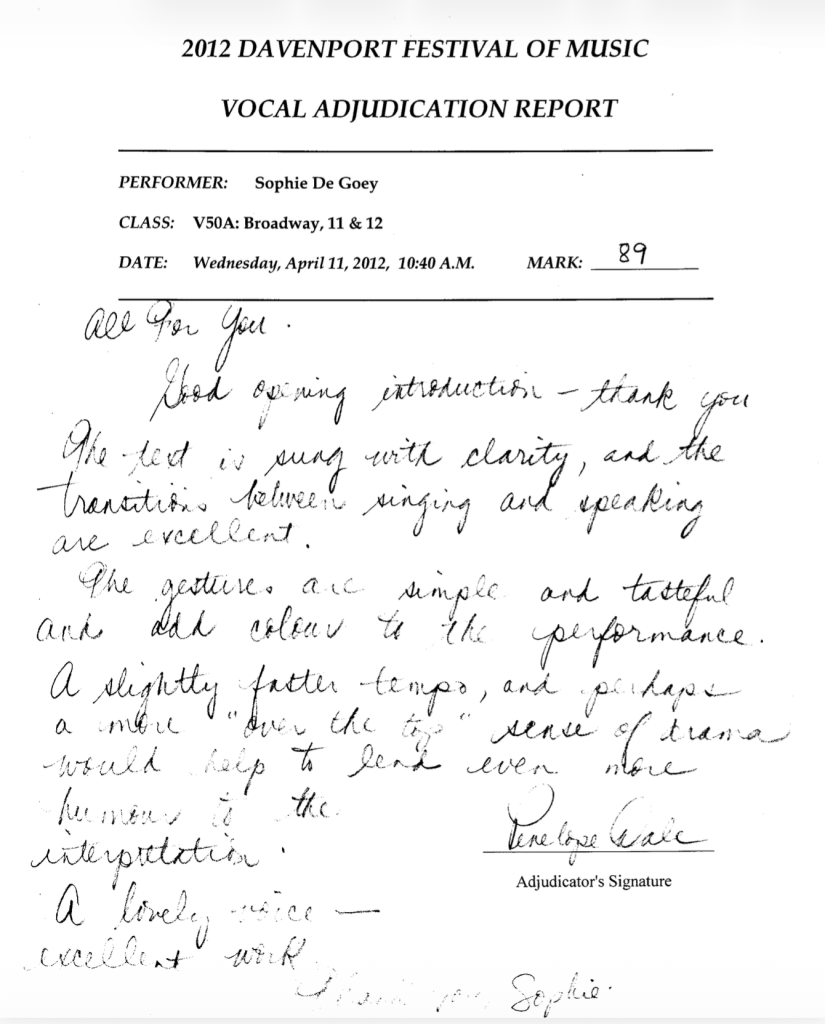 2012 DAVENPORT FESTIVAL OF MUSIC
VOCAL ADJUDICATION REPORT
PERFORMER: Sophie De Goey
CLASS: V50A: Broadway, 11 & 12
DATE: Wednesday, April 11, 2012, 10:40 A.M. MARK: 89
All For You.
Good opening introduction – thank you
The text is sung with clarity, and the
transitions between singing and speaking
are excellent.
The gestures are simple and tasteful
and add colour to the performance.
A slightly faster tempo, and perhaps
a more "over the top" sense of trama
would help to lend even more
humour to the
interpretation.
Penelope
Adjudicator's Signature
A lovely voice –
excellent work
Thank you, Sophie.